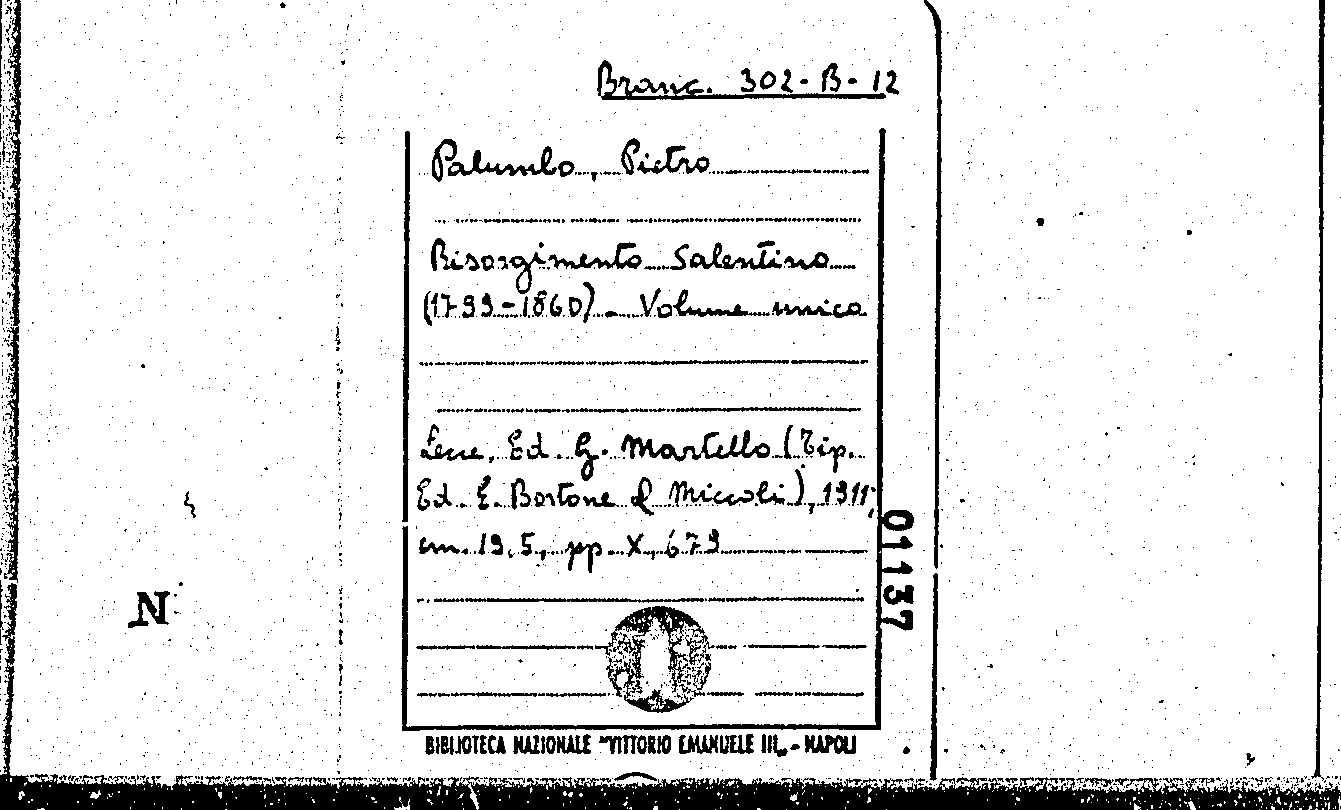 Branc. 302-B-12
Palumbo, Pietro
Risorgimento Salentino
(1799-1860). Volume unico
Lecce, Ed. G. Martello (Tip.
Ed. E. Bortone & Miccoli), 1911;
cm. 19,5, pp. X, 679
01137
N
BIBLIOTECA NAZIONALE "VITTORIO EMANUELE III„ - NAPOLI